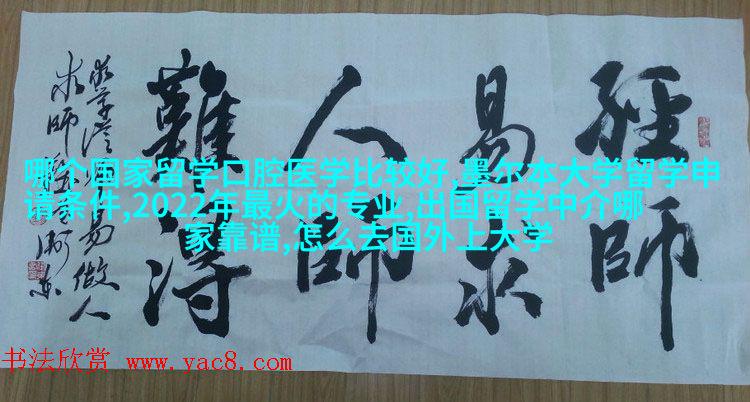 經師
易求
人師
難得
易做人
求師難
哪个国家留学口腔医学比较好,墨尔本大学留学申
请条件,2022年最火的专业,出国留学中介哪
家靠谱,怎么去国外上大学
书法欣赏 www.yac8.com